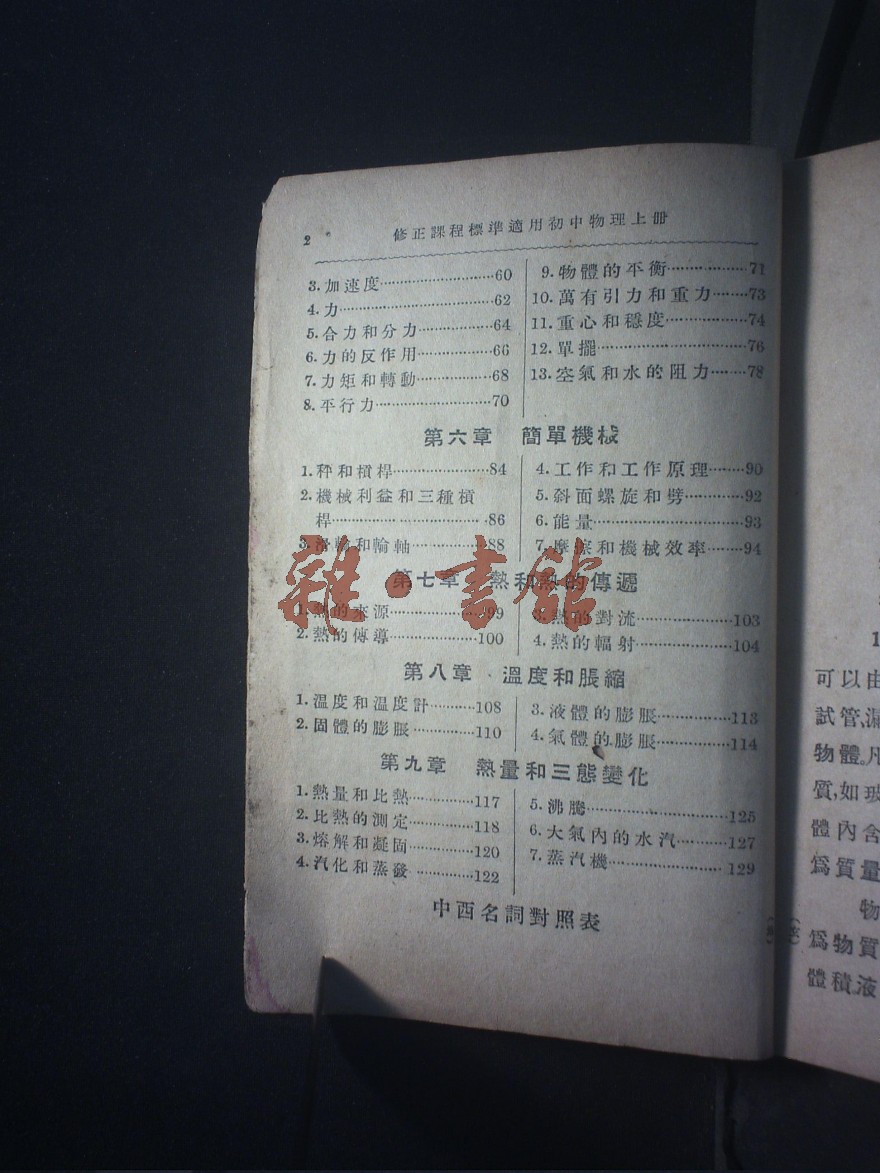 2 修正課程標準適用初中物理上冊
3. 加速度…………60
4. 力…………62
5. 合力和分力…………64
6. 力的反作用…………66
7. 力矩和轉動…………68
8. 平行力…………70
9. 物體的平衡…………71
10. 萬有引力和重力…………73
11. 重心和穩度…………74
12. 單擺…………76
13. 空氣和水的阻力…………78
第六章 簡單機械
1. 秤和槓桿…………84
2. 機械利益和三種槓
桿…………86
3. 滑輪和輪軸…………88
4. 工作和工作原理…………90
5. 斜面螺旋和劈…………92
6. 能量…………93
7. 摩擦和機械效率…………94
第七章 熱和熱的傳遞
1. 熱的來源…………99
2. 熱的傳導…………100
3. 熱的對流…………103
4. 熱的輻射…………104
第八章 溫度和脹縮
1. 溫度和溫度計…………108
2. 固體的膨脹…………110
3. 液體的膨脹…………113
4. 氣體的膨脹…………114
第九章 熱量和三態變化
1. 熱量和比熱…………117
2. 比熱的測定…………118
3. 熔解和凝固…………120
4. 汽化和蒸發…………122
5. 沸騰…………125
6. 大氣內的水汽…………127
7. 蒸汽機…………129
中西名詞對照表
雜·書館
1
可以由
試管、漏
物體。凡
質,如玻
體內含
爲質量
物
爲物質
體積。液